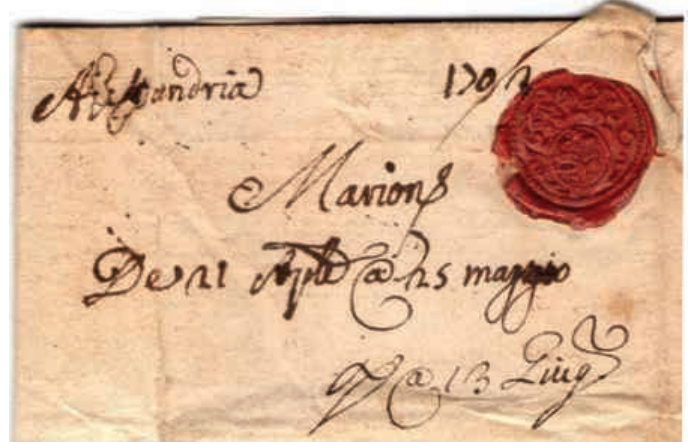 Alessandria 1702
Marion
De 21 Aple @ 25 maggio
@ 13 Giug